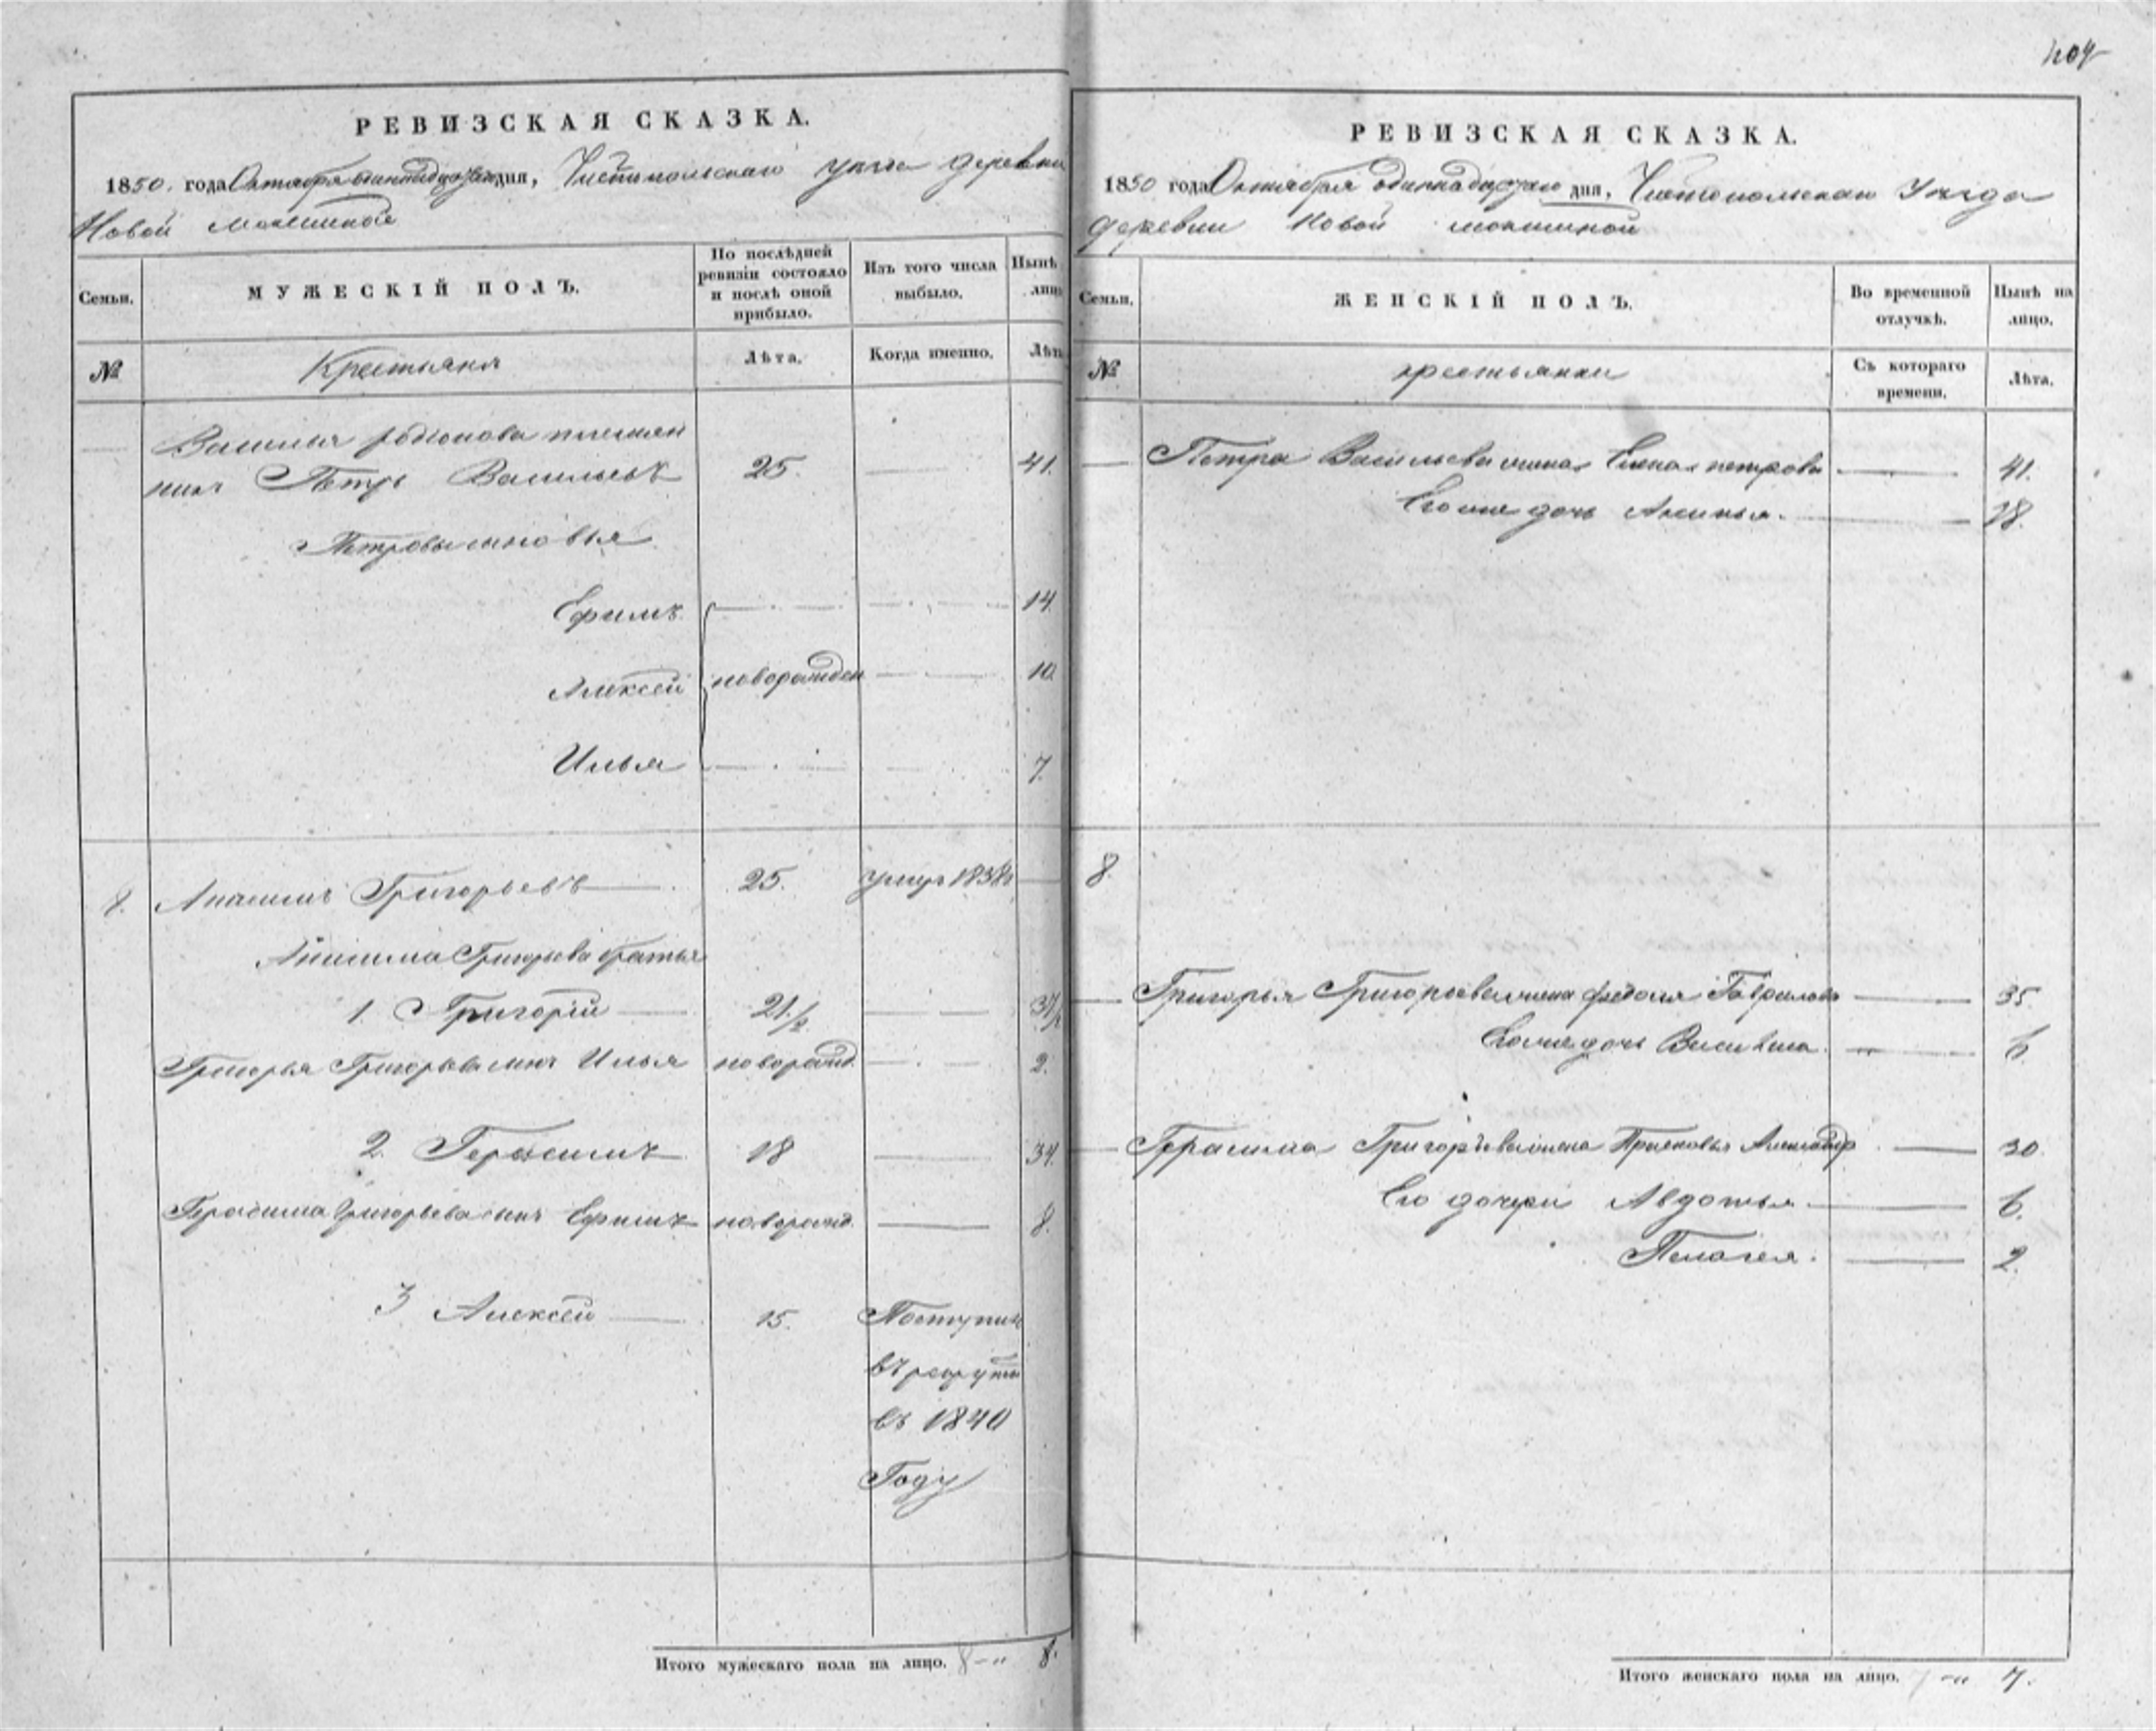 РЕВИЗСКАЯ СКАЗКА.
1850. года Октября одиннадцатого дня, Чистопольскаго уѣзда деревни
Новой
Семьи. МУЖЕСКІЙ ПОЛЪ. По послѣдней ревизіи состояло и послѣ оной прибыло. Изъ того числа выбыло. Нынѣ лицо
№ Крестьяне Лѣта. Когда именно. Лѣта
Василья Родіонова племян
никъ Петръ Васильевъ 25. 41.
Петровы сыновья
Ефимъ 14.
Алексей новорожден 10.
Илья 7.
8. Анисимъ Григорьевъ 25. умеръ 1838
Анисима Григорьева братья
1. Григорій 21 1/2
Григорья Григорьева сынъ Илья новорожд. 2.
2. Герасимъ 18 34.
Герасима Григорьева сынъ Ефимъ новорожд. 8.
3 Алексей 15. Поступилъ
въ рекруты
въ 1840
Году
Итого мужескаго пола на лицо. 8 8.
404
РЕВИЗСКАЯ СКАЗКА.
1850 года Октября одиннадцатаго дня, Чистопольскаго Уѣзда
деревни Новой
Семьи. ЖЕНСКІЙ ПОЛЪ. Во временной отлучкѣ. Нынѣ на лицо.
№ крестьянки Съ котораго времени. Лѣта.
Петра Васильева жена Елена петрова 41.
Его же дочь 18.
8.
Григорья Григорьева жена Федосья Гаврилова 35.
Его же дочь Василиса 6.
Герасима Григорьева жена Прасковья Александр 30.
Его дочери Авдотья 6.
Пелагея. 2.
Итого женскаго пола на лицо. 7 7.